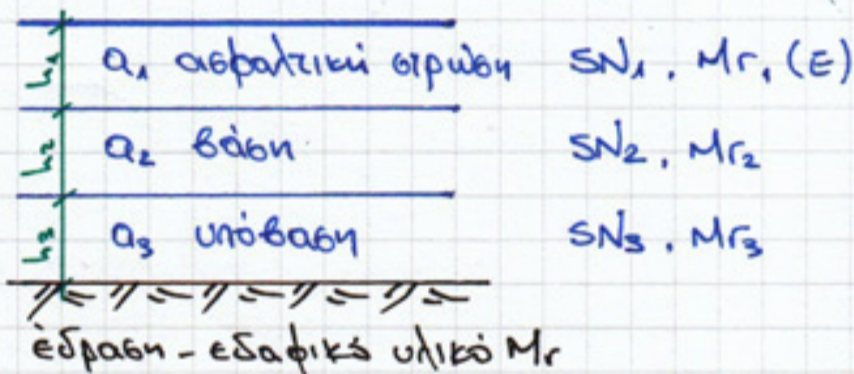 h₁ a₁ ασφαλτική στρώση SN₁, Mr₁ (E)
h₂ a₂ βάση SN₂, Mr₂
h₃ a₃ υπόβαση SN₃, Mr₃
έδραση - εδαφικό υλικό Mr